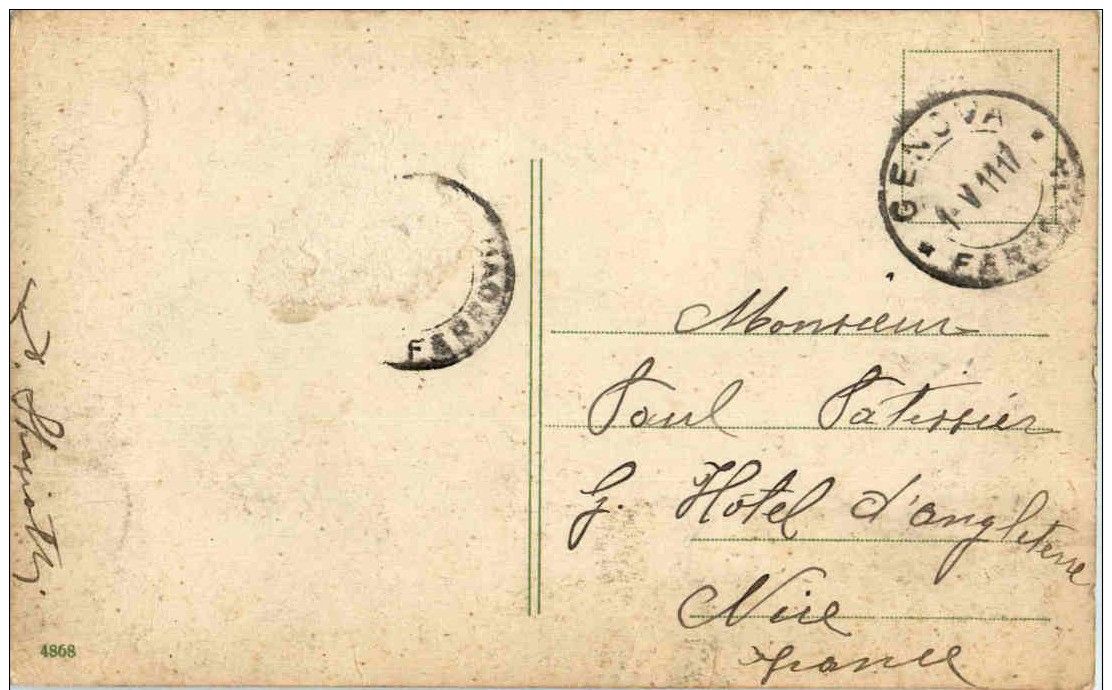 GENOVA
1-V 11 17
FERROVIA
FERROVIA
Monsieur
Paul Patissier
G. Hôtel d'angleterre
Nice
France
4868